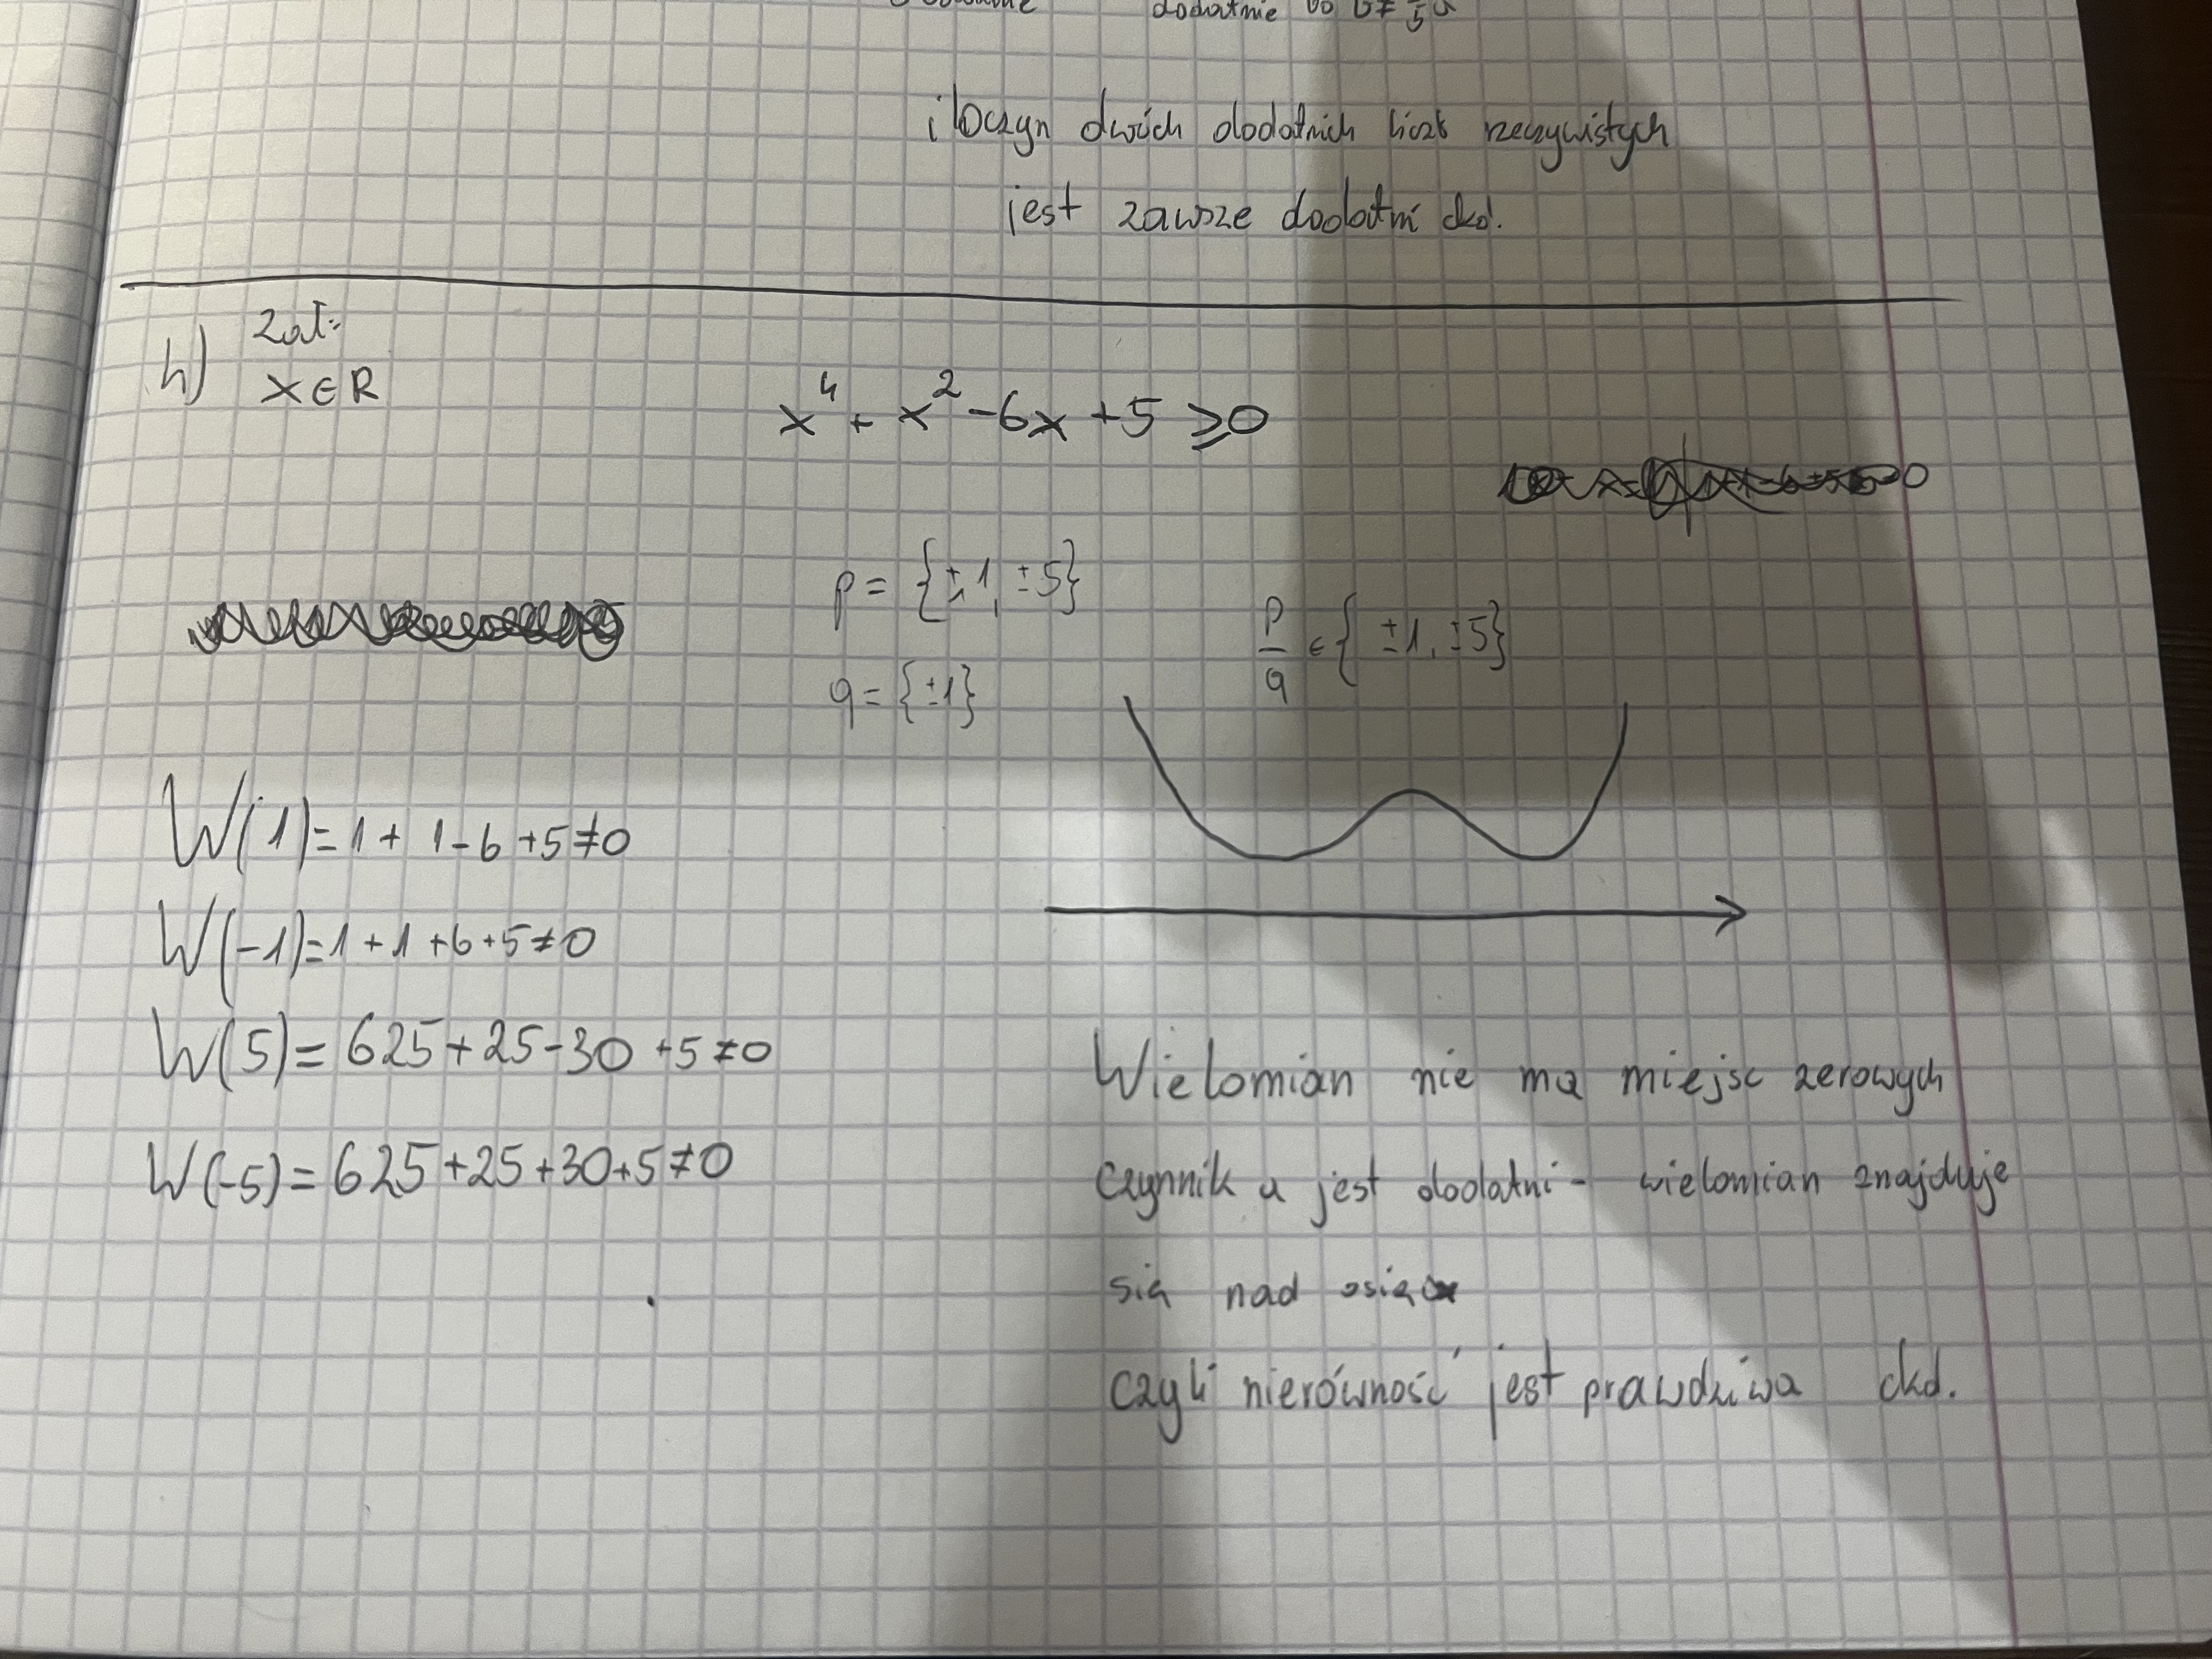 dodatnie bo b ≠ 1/5 a
iloczyn dwóch dodatnich liczb rzeczywistych
jest zawsze dodatni ckd.
h) Zał:
x ∈ R
x⁴ + x² - 6x + 5 ⩾ 0
p = {±1, ±5}
p/q ∈ {±1, ±5}
q = {±1}
W(1) = 1 + 1 - 6 + 5 ≠ 0
W(-1) = 1 + 1 + 6 + 5 ≠ 0
W(5) = 625 + 25 - 30 + 5 ≠ 0
W(-5) = 625 + 25 + 30 + 5 ≠ 0
Wielomian nie ma miejsc zerowych
czynnik a jest dodatni - wielomian znajduje
się nad osią
czyli nierówność jest prawdziwa ckd.